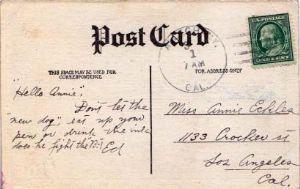 Post Card
THIS SPACE MAY BE USED FOR
CORRESPONDENCE
THE ADDRESS ONLY
1
7 AM
CAL.
"Hello Annie".
Don't let the
"new dog", eat up your
pen or drink the ink
does he fight the
Ed
Miss Annie
1133 Crocker st
Los Angeles
Cal.